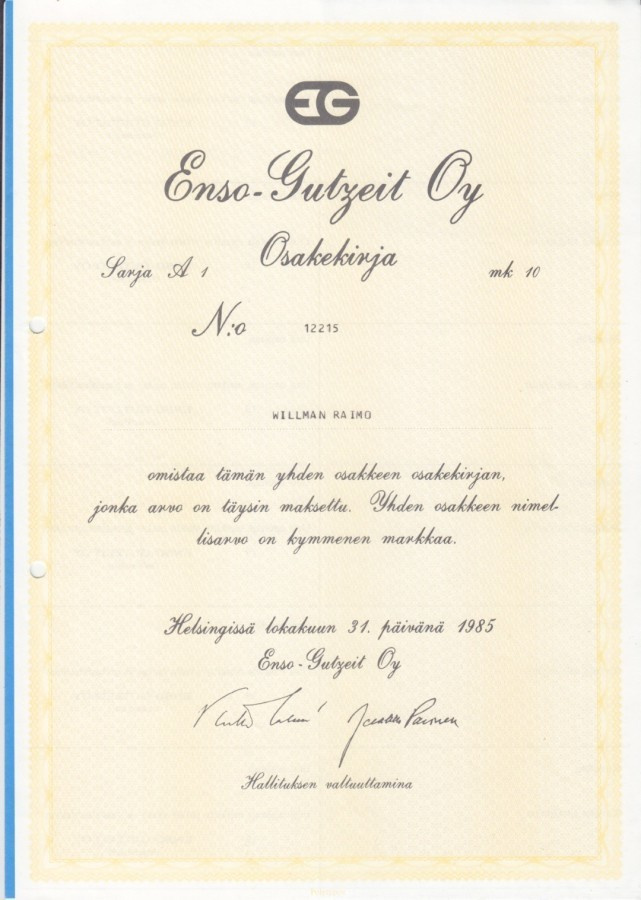 EG
Enso-Gutzeit Oy
Osakekirja
Sarja A 1
mk 10
N:o 12215
WILLMAN RAIMO
omistaa tämän yhden osakkeen osakekirjan,
jonka arvo on täysin maksettu. Yhden osakkeen nimel-
lisarvo on kymmenen markkaa.
Helsingissä lokakuun 31. päivänä 1985
Enso-Gutzeit Oy
Hallituksen valtuuttamina